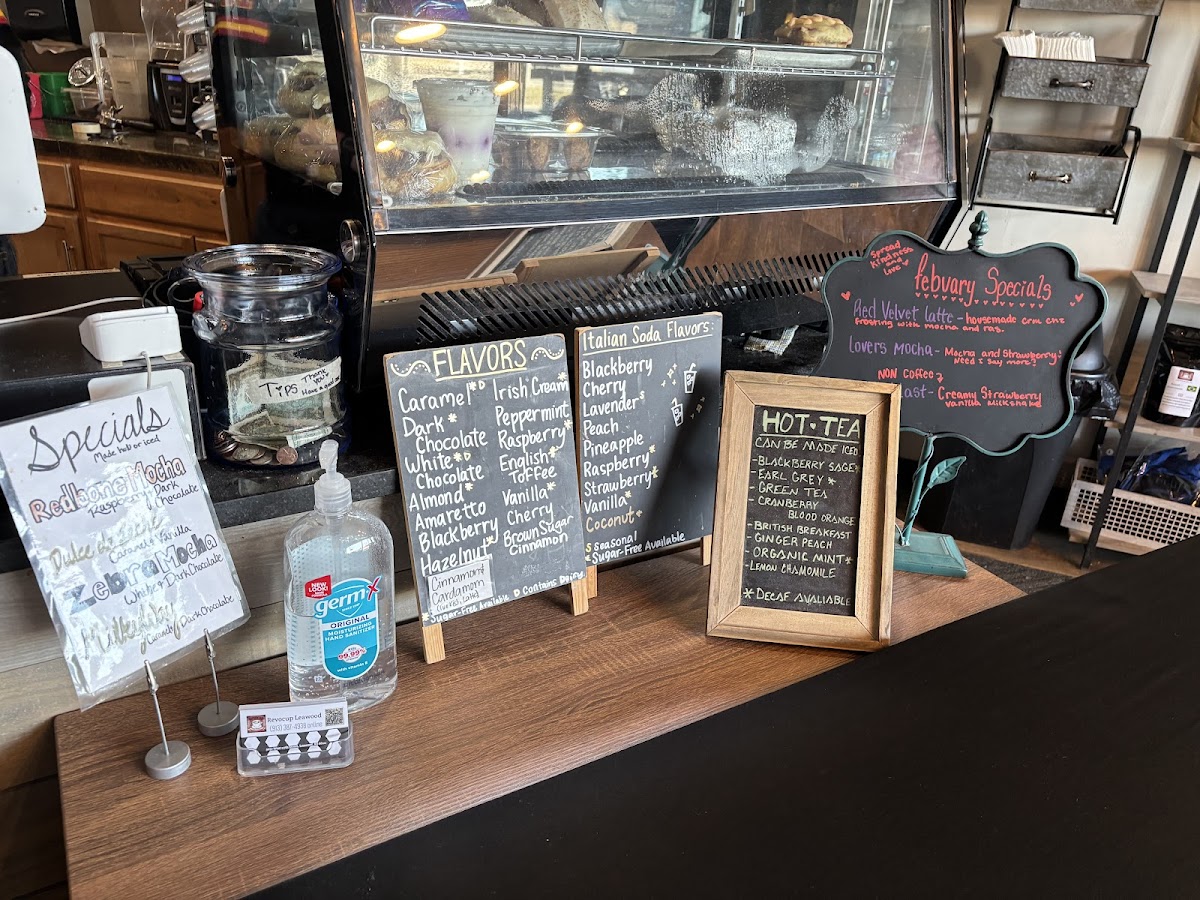 Specials
Made hot or iced
Redbone Mocha
Raspberry Dark
Chocolate
Dulce de leche
Caramel Vanilla
Zebra Mocha
White Dark Chocolate
Milkyway
Caramel Dark Chocolate
Tips Thank you
NEW LOOK!
germ-x
ORIGINAL
MOISTURIZING
HAND SANITIZER
99.99%
with vitamin E
Revocup Leawood
(913) 387-4938 online
FLAVORS
Caramel *D
Dark *
Chocolate
White *D
Chocolate
Almond *
Amaretto
Blackberry
Hazelnut *
Cinnamon
Cardamom
Irish Cream
Peppermint
Raspberry *
English *
Toffee
Vanilla *
Cherry
Brown Sugar
Cinnamon
Sugar-Free Available D Contains Dairy
Italian Soda Flavors:
Blackberry
Cherry
Lavender s
Peach
Pineapple
Raspberry *
Strawberry
Vanilla *
Coconut *
s seasonal
* Sugar-Free Available
HOT TEA
CAN BE MADE ICED
- BLACKBERRY SAGE *
- EARL GREY *
- GREEN TEA
- CRANBERRY
BLOOD ORANGE
- BRITISH BREAKFAST
GINGER PEACH
- ORGANIC MINT *
- LEMON CHAMOMILE
* DECAF AVALIABLE
Spread
Kindness
and
Love
febuary Specials
Red Velvet latte - housemade crm chz
frosting with mocha and ras.
Lovers Mocha - Mocha and Strawberry;
Need i say more?
NON Coffee
ast - Creamy Strawberry
vanilla milkshake